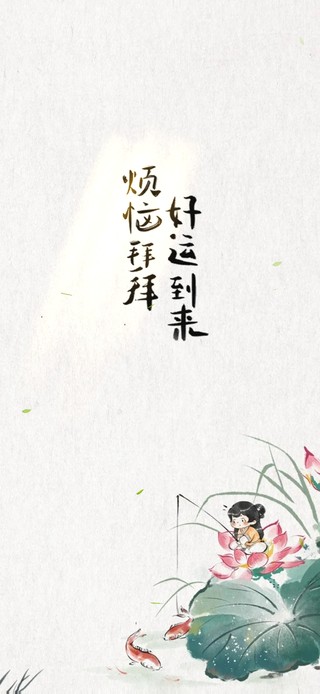 烦恼拜拜
好运到来